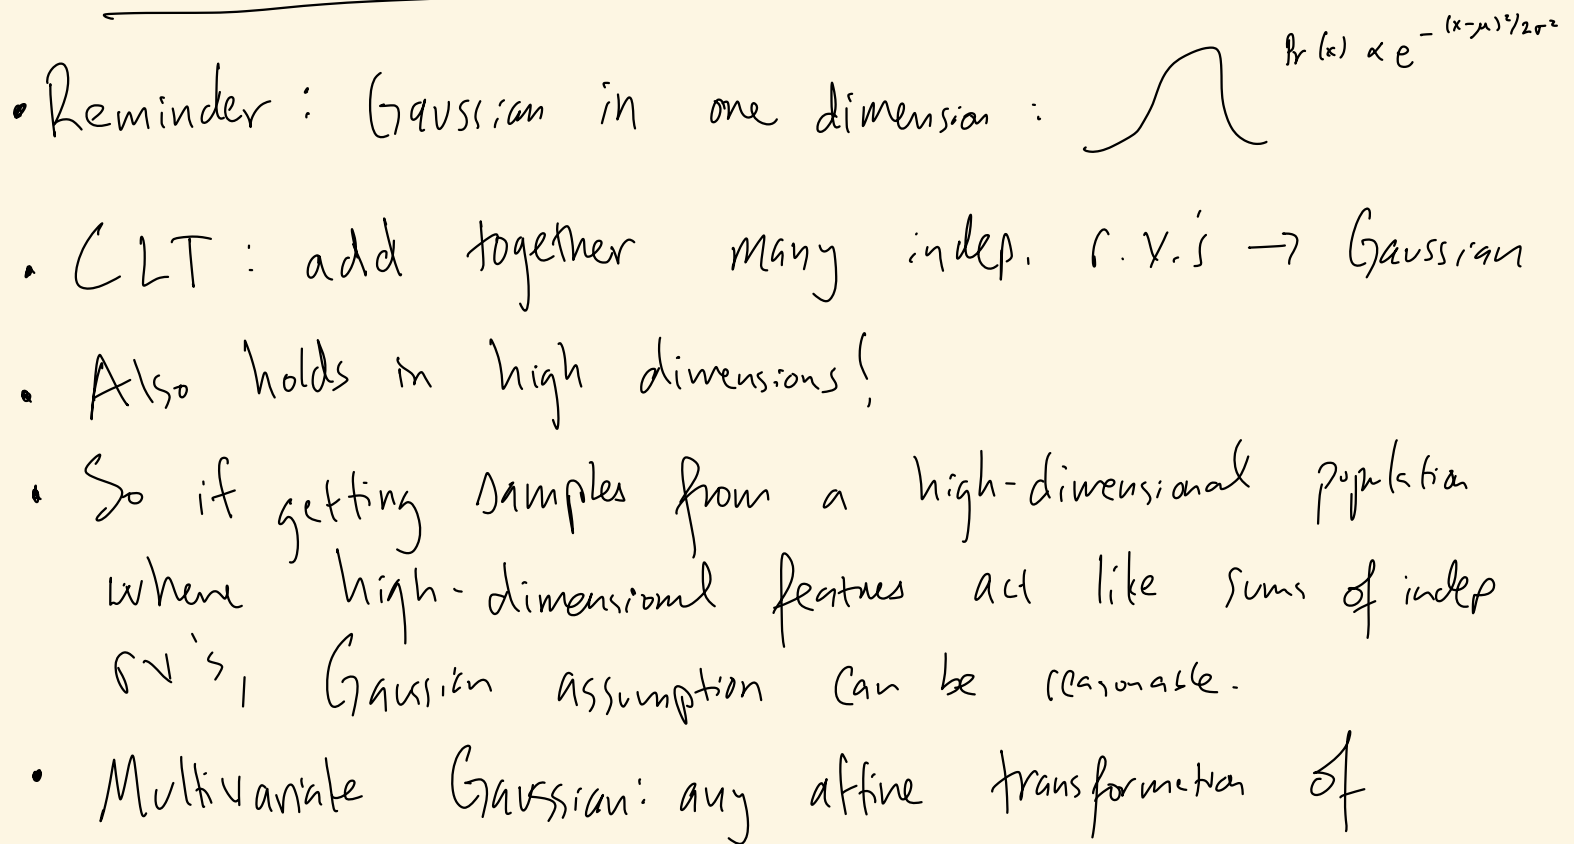 • Reminder: Gaussian in one dimension: Pr(x) ∝ e^{-(x-μ)²/2σ²}
• CLT: add together many indep. r.v.'s → Gaussian
• Also holds in high dimensions!
• So if getting samples from a high-dimensional population
where high-dimensional features act like sums of indep
rv's, Gaussian assumption can be reasonable.
• Multivariate Gaussian: any affine transformation of